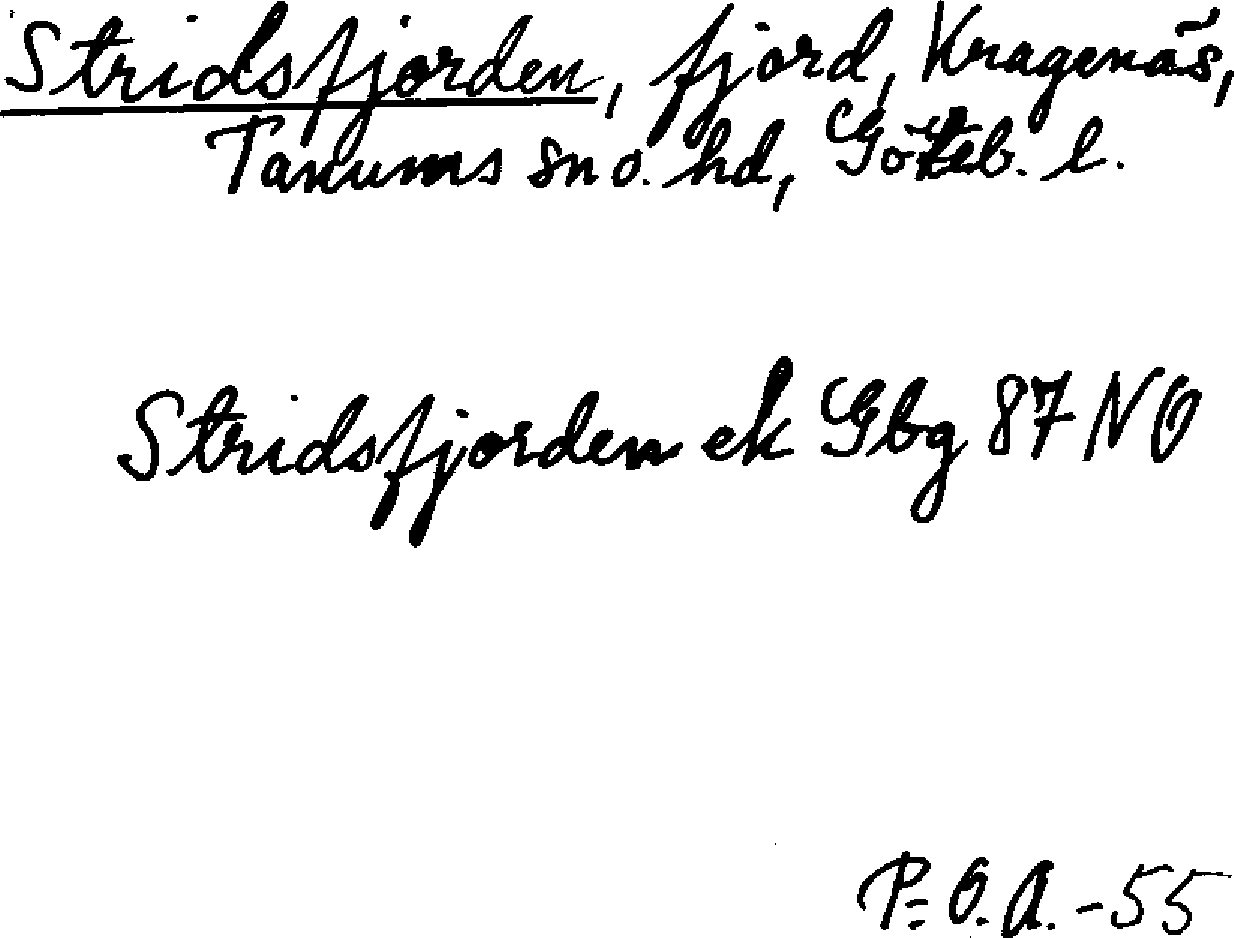 Stridsfjorden, fjord, Kragenäs,
Tanums sn o. hd, Göteb. l.
Stridsfjorden ek Gbg 87 NO
P-O.A. -55